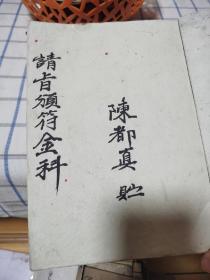 請旨頒符金科
陳都真貯